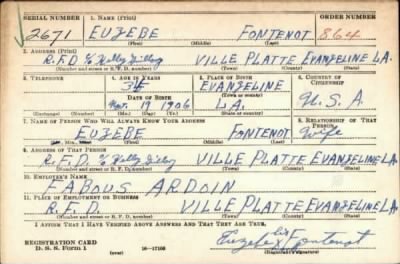 SERIAL NUMBER 1. NAME (Print) ORDER NUMBER
2671 EUZEBE FONTENOT 864
(First) (Middle) (Last)
2. ADDRESS (Print)
R.F.D. % VILLE PLATTE EVANGELINE LA.
(Number and street or R. F. D. number) (Town) (County) (State)
3. TELEPHONE 4. AGE IN YEARS 5. PLACE OF BIRTH 6. COUNTRY OF CITIZENSHIP
34 EVANGELINE
DATE OF BIRTH (Town or county)
19 1906 LA. U.S.A.
(Exchange) (Number) (Mo.) (Day) (Yr.) (State or country)
7. NAME OF PERSON WHO WILL ALWAYS KNOW YOUR ADDRESS 8. RELATIONSHIP OF THAT PERSON
EUZEBE FONTENOT Wife
(First) (Middle) (Last)
9. ADDRESS OF THAT PERSON
R.F.D. % VILLE PLATTE EVANGELINE LA.
(Number and street or R. F. D. number) (Town) (County) (State)
10. EMPLOYER'S NAME
FABOUS ARDOIN
11. PLACE OF EMPLOYMENT OR BUSINESS
R.F.D. VILLE PLATTE EVANGELINE LA.
(Number and street or R. F. D. number) (Town) (County) (State)
I AFFIRM THAT I HAVE VERIFIED ABOVE ANSWERS AND THAT THEY ARE TRUE.
REGISTRATION CARD
D. S. S. Form 1 (over) 16—17105
Euzebe his X Fontenot